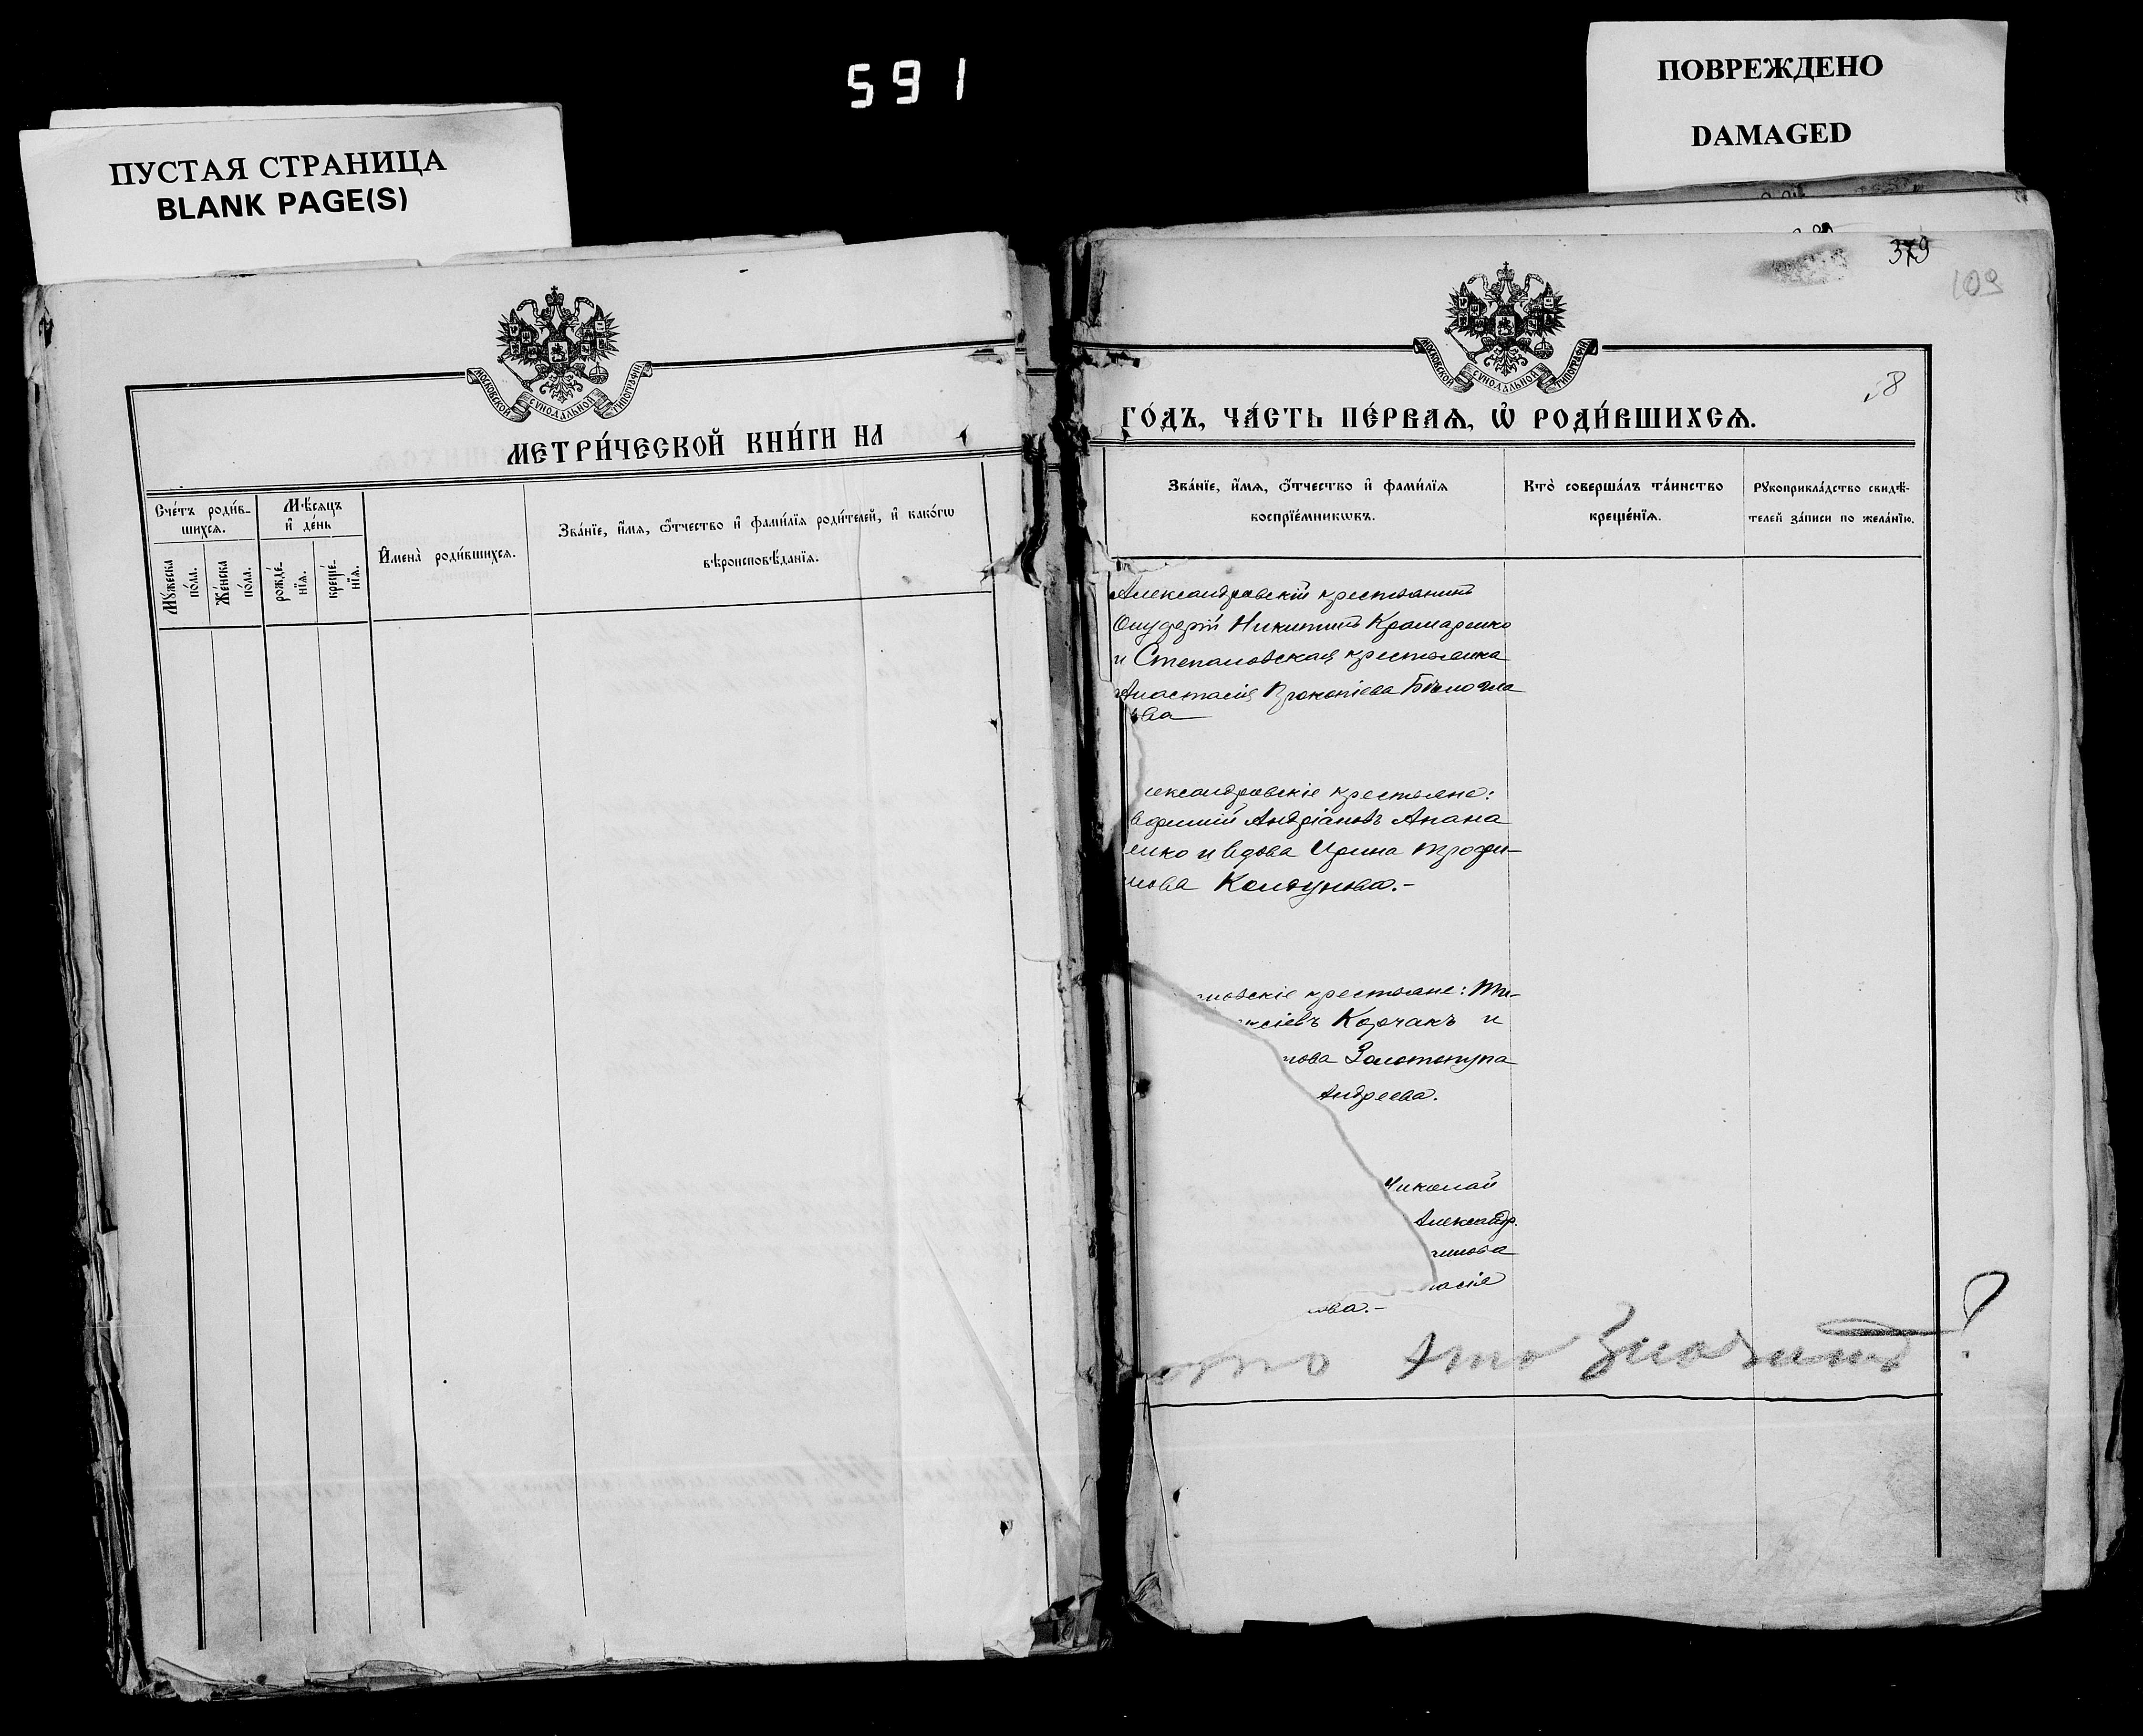 591
ПУСТАЯ СТРАНИЦА
BLANK PAGE(S)
ПОВРЕЖДЕНО
DAMAGED
379
109
МОСКОВСКОЙ СѴНОДАЛЬНОЙ ТИПОГРАФІИ
МЕТРИ́ЧЕСКОЙ КНИ́ГИ НА
Сче́тъ роди́в-
шихсѧ.
Мѣ́сѧцъ
и҆ де́нь
Мꙋ́жеска
по́ла.
Же́нска
по́ла.
рожде́-
нїѧ.
креще́-
нїѧ.
И҆мена̀ роди́вшихсѧ.
Зва́нїе, и҆́мѧ, ѻ҆́тчество и҆ фами́лїѧ роди́телей, и҆ како́гѡ
вѣроисповѣ́данїѧ.
МОСКОВСКОЙ СѴНОДАЛЬНОЙ ТИПОГРАФІИ
58
ГО́ДЪ, ЧА́СТЬ ПЕ́РВАѦ, Ѡ҆ РОДИ́ВШИХСѦ.
Зва́нїе, и҆́мѧ, ѻ҆́тчество и҆ фами́лїѧ
воспрїе́мникѡвъ.
Кто̀ соверша́лъ та́инство
креще́нїѧ.
Рꙋкоприкла́дство свидѣ́-
телей за́писи по жела́нїю.
Александровскій крестьянинъ
Онуфрій Никитинъ Крамаренко
и Степановская крестьянка
Анастасія Прокопіева Бѣлогла
ова
лександровскіе крестьяне:
Андріановъ Апана
енко и вдова Ирина Трофи-
мова Колдунова.-
новскіе крестьяне: Ти-
ксіевъ Корчакъ и
нова Золотопупа
Андреева.
Николай
Александр.
нова
асія
ова.-
это значитъ?